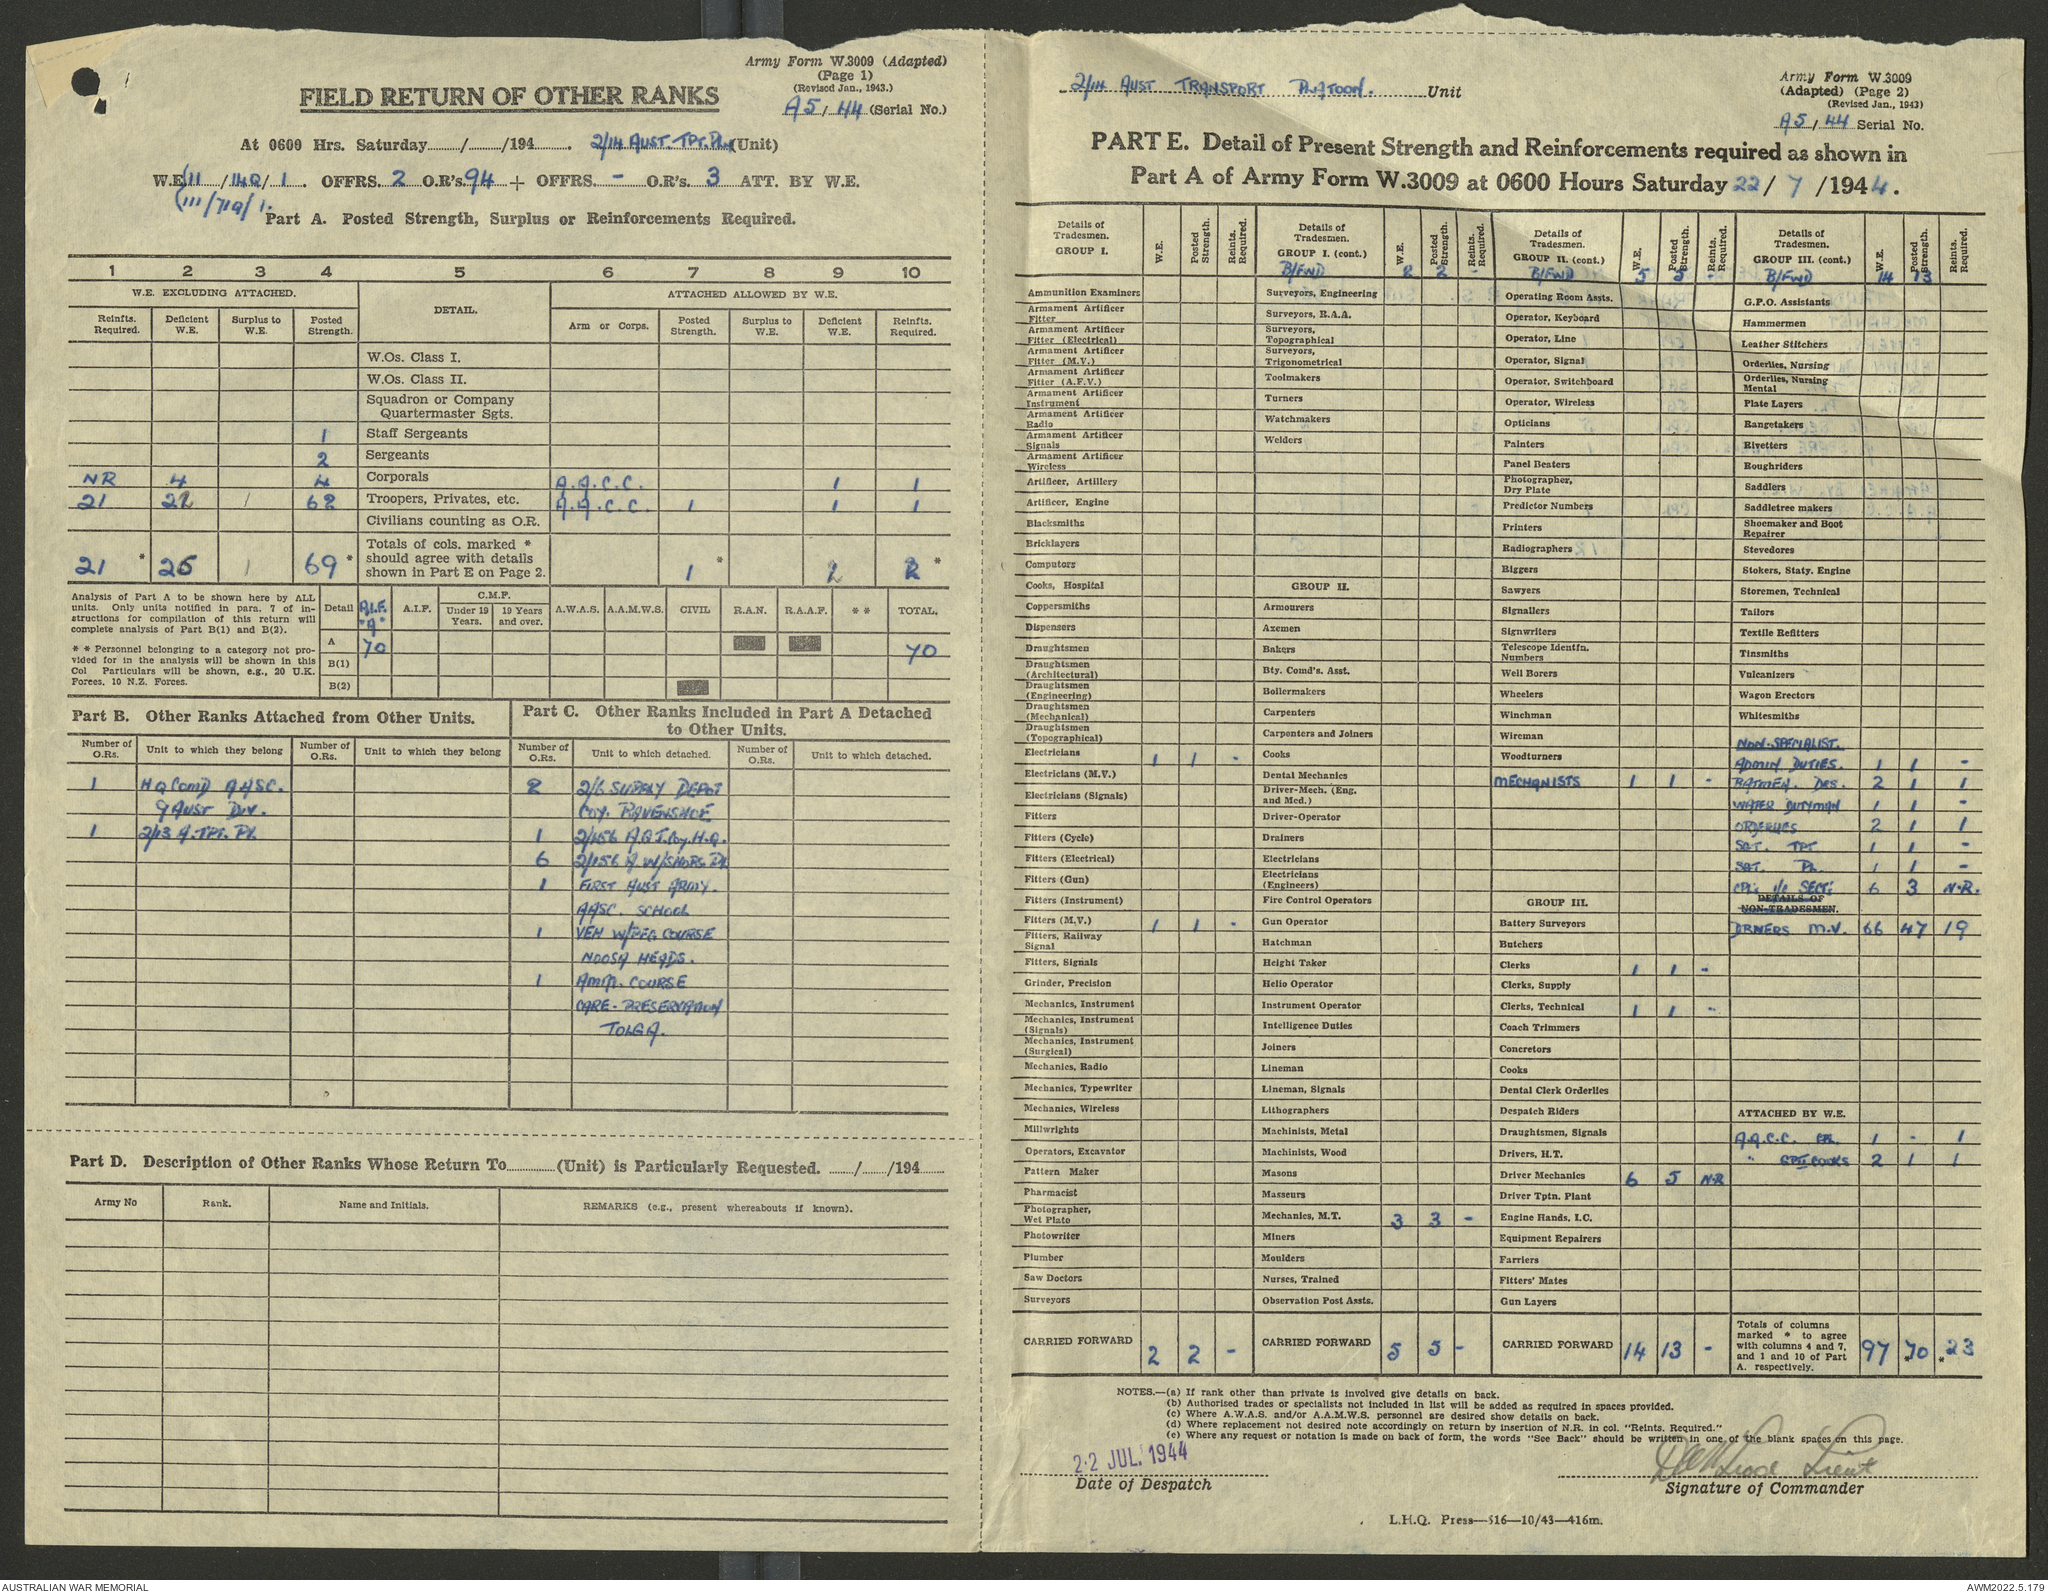 Army Form W.3009 (Adapted)
(Page 1)
(Revised Jan., 1943.)
A5/44 (Serial No.)
FIELD RETURN OF OTHER RANKS
At 0600 Hrs. Saturday....../....../194...... 2/14 AUST. TPT. PL. (Unit)
W.E. (11/140/1. OFFRS. 2 O.R's. 94 + OFFRS. - O.R's. 3 ATT. BY W.E.
(111/71Q/1.
Part A. Posted Strength, Surplus or Reinforcements Required.
1 2 3 4 5 6 7 8 9 10
W.E. EXCLUDING ATTACHED. DETAIL. ATTACHED ALLOWED BY W.E.
Reinfts. Required. Deficient W.E. Surplus to W.E. Posted Strength. Arm or Corps. Posted Strength. Surplus to W.E. Deficient W.E. Reinfts. Required.
W.Os. Class I.
W.Os. Class II.
Squadron or Company
Quartermaster Sgts.
1 Staff Sergeants
2 Sergeants
NR 4 4 Corporals A.A.C.C. 1 1
21 22 1 62 Troopers, Privates, etc. A.A.C.C. 1 1 1
Civilians counting as O.R.
21 * 26 1 69 * Totals of cols. marked * should agree with details shown in Part E on Page 2. 1 * 2 2 *
Analysis of Part A to be shown here by ALL
units. Only units notified in para. 7 of in-
structions for compilation of this return will
complete analysis of Part B(1) and B(2).
* * Personnel belonging to a category not pro-
vided for in the analysis will be shown in this
Col Particulars will be shown, e.g., 20 U.K.
Forces. 10 N.Z. Forces.
Detail A.I.F. "A" A.I.F. C.M.F. Under 19 Years. 19 Years and over. A.W.A.S. A.A.M.W.S. CIVIL R.A.N. R.A.A.F. * * TOTAL.
A 70 70
B(1)
B(2)
Part B. Other Ranks Attached from Other Units.
Number of O.Rs. Unit to which they belong Number of O.Rs. Unit to which they belong
1 HQ COMD AASC.
9 AUST DIV.
1 2/13 A. TPT. PL
Part C. Other Ranks Included in Part A Detached
to Other Units.
Number of O.Rs. Unit to which detached. Number of O.Rs. Unit to which detached.
2 2/6 SUPPLY DEPOT
COY. RAVENSHOE
1 2/156 A.G.T. Coy. H.Q.
6 2/156 A W/SHOPS PL
1 FIRST AUST ARMY.
AASC. SCHOOL
1 VEH W/PFG COURSE
NOOSA HEADS.
1 AMM. COURSE
CARE-PRESERVATION
TOLGA.
Part D. Description of Other Ranks Whose Return To............(Unit) is Particularly Requested. ....../....../194......
Army No Rank. Name and Initials. REMARKS (e.g., present whereabouts if known).
2/14 AUST TRANSPORT PLATOON. Unit
Army Form W.3009
(Adapted) (Page 2)
(Revised Jan., 1943)
A5/44 Serial No.
PART E. Detail of Present Strength and Reinforcements required as shown in
Part A of Army Form W.3009 at 0600 Hours Saturday 22/7/1944.
Details of Tradesmen. GROUP I. W.E. Posted Strength. Reints. Required.
Ammunition Examiners
Armament Artificer Fitter
Armament Artificer Fitter (Electrical)
Armament Artificer Fitter (M.V.)
Armament Artificer Fitter (A.F.V.)
Armament Artificer Instrument
Armament Artificer Radio
Armament Artificer Signals
Armament Artificer Wireless
Artificer, Artillery
Artificer, Engine
Blacksmiths
Bricklayers
Computors
Cooks, Hospital
Coppersmiths
Dispensers
Draughtsmen
Draughtsmen (Architectural)
Draughtsmen (Engineering)
Draughtsmen (Mechanical)
Draughtsmen (Topographical)
Electricians 1 1 -
Electricians (M.V.)
Electricians (Signals)
Fitters
Fitters (Cycle)
Fitters (Electrical)
Fitters (Gun)
Fitters (Instrument)
Fitters (M.V.) 1 1 -
Fitters, Railway Signal
Fitters, Signals
Grinder, Precision
Mechanics, Instrument
Mechanics, Instrument (Signals)
Mechanics, Instrument (Surgical)
Mechanics, Radio
Mechanics, Typewriter
Mechanics, Wireless
Millwrights
Operators, Excavator
Pattern Maker
Pharmacist
Photographer, Wet Plate
Photowriter
Plumber
Saw Doctors
Surveyors
CARRIED FORWARD 2 2 -
Details of Tradesmen. GROUP I. (cont.) W.E. Posted Strength. Reints. Required.
B/FWD 2 2 -
Surveyors, Engineering
Surveyors, R.A.A.
Surveyors, Topographical
Surveyors, Trigonometrical
Toolmakers
Turners
Watchmakers
Welders
GROUP II.
Armourers
Axemen
Bakers
Bty. Comd's. Asst.
Boilermakers
Carpenters
Carpenters and Joiners
Cooks
Dental Mechanics
Driver-Mech. (Eng. and Med.)
Driver-Operator
Drainers
Electricians
Electricians (Engineers)
Fire Control Operators
Gun Operator
Hatchman
Height Taker
Helio Operator
Instrument Operator
Intelligence Duties
Joiners
Lineman
Lineman, Signals
Lithographers
Machinists, Metal
Machinists, Wood
Masons
Masseurs
Mechanics, M.T. 3 3 -
Miners
Moulders
Nurses, Trained
Observation Post Assts.
CARRIED FORWARD 5 5 -
Details of Tradesmen. GROUP II. (cont.) W.E. Posted Strength. Reints. Required.
B/FWD 5 5 -
Operating Room Assts.
Operator, Keyboard
Operator, Line
Operator, Signal
Operator, Switchboard
Operator, Wireless
Opticians
Painters
Panel Beaters
Photographer, Dry Plate
Predictor Numbers
Printers
Radiographers
Riggers
Sawyers
Signallers
Signwriters
Telescope Identfn. Numbers
Well Borers
Wheelers
Winchman
Wireman
Woodturners
MECHANISTS 1 1 -
GROUP III.
Battery Surveyors
Butchers
Clerks 1 1 -
Clerks, Supply
Clerks, Technical 1 1 -
Coach Trimmers
Concretors
Cooks
Dental Clerk Orderlies
Despatch Riders
Draughtsmen, Signals
Drivers, H.T.
Driver Mechanics 6 5 N.R
Driver Tptn. Plant
Engine Hands, I.C.
Equipment Repairers
Farriers
Fitters' Mates
Gun Layers
CARRIED FORWARD 14 13 -
Details of Tradesmen. GROUP III. (cont.) W.E. Posted Strength. Reints. Required.
B/FWD 14 13
G.P.O. Assistants
Hammermen
Leather Stitchers
Orderlies, Nursing
Orderlies, Nursing Mental
Plate Layers
Rangetakers
Rivetters
Roughriders
Saddlers
Saddletree makers
Shoemaker and Boot Repairer
Stevedores
Stokers, Staty. Engine
Storemen, Technical
Tailors
Textile Refitters
Tinsmiths
Vulcanizers
Wagon Erectors
Whitesmiths
NON-SPECIALIST.
ADMIN DUTIES. 1 1 -
BATMEN. DRS. 2 1 1
WATER DUTYMAN 1 1 -
ORDERLIES 2 1 1
SGT. TPT 1 1 -
SGT. PL 1 1 -
CPL. i/c SECT: 6 3 N.R.
DETAILS OF
NON-TRADESMEN.
DRIVERS M.V. 66 47 19
ATTACHED BY W.E.
A.A.C.C. CPL. 1 - 1
" GPII COOKS 2 1 1
Totals of columns marked * to agree with columns 4 and 7, and 1 and 10 of Part A. respectively. 97 *70 *23
NOTES.—(a) If rank other than private is involved give details on back.
(b) Authorised trades or specialists not included in list will be added as required in spaces provided.
(c) Where A.W.A.S. and/or A.A.M.W.S. personnel are desired show details on back.
(d) Where replacement not desired note accordingly on return by insertion of N.R. in col. "Reints. Required."
(e) Where any request or notation is made on back of form, the words "See Back" should be written in one of the blank spaces on this page.
22 JUL. 1944
Date of Despatch
Lieut
Signature of Commander
L.H.Q. Press—516—10/43—416m.
AUSTRALIAN WAR MEMORIAL
AWM2022.5.179